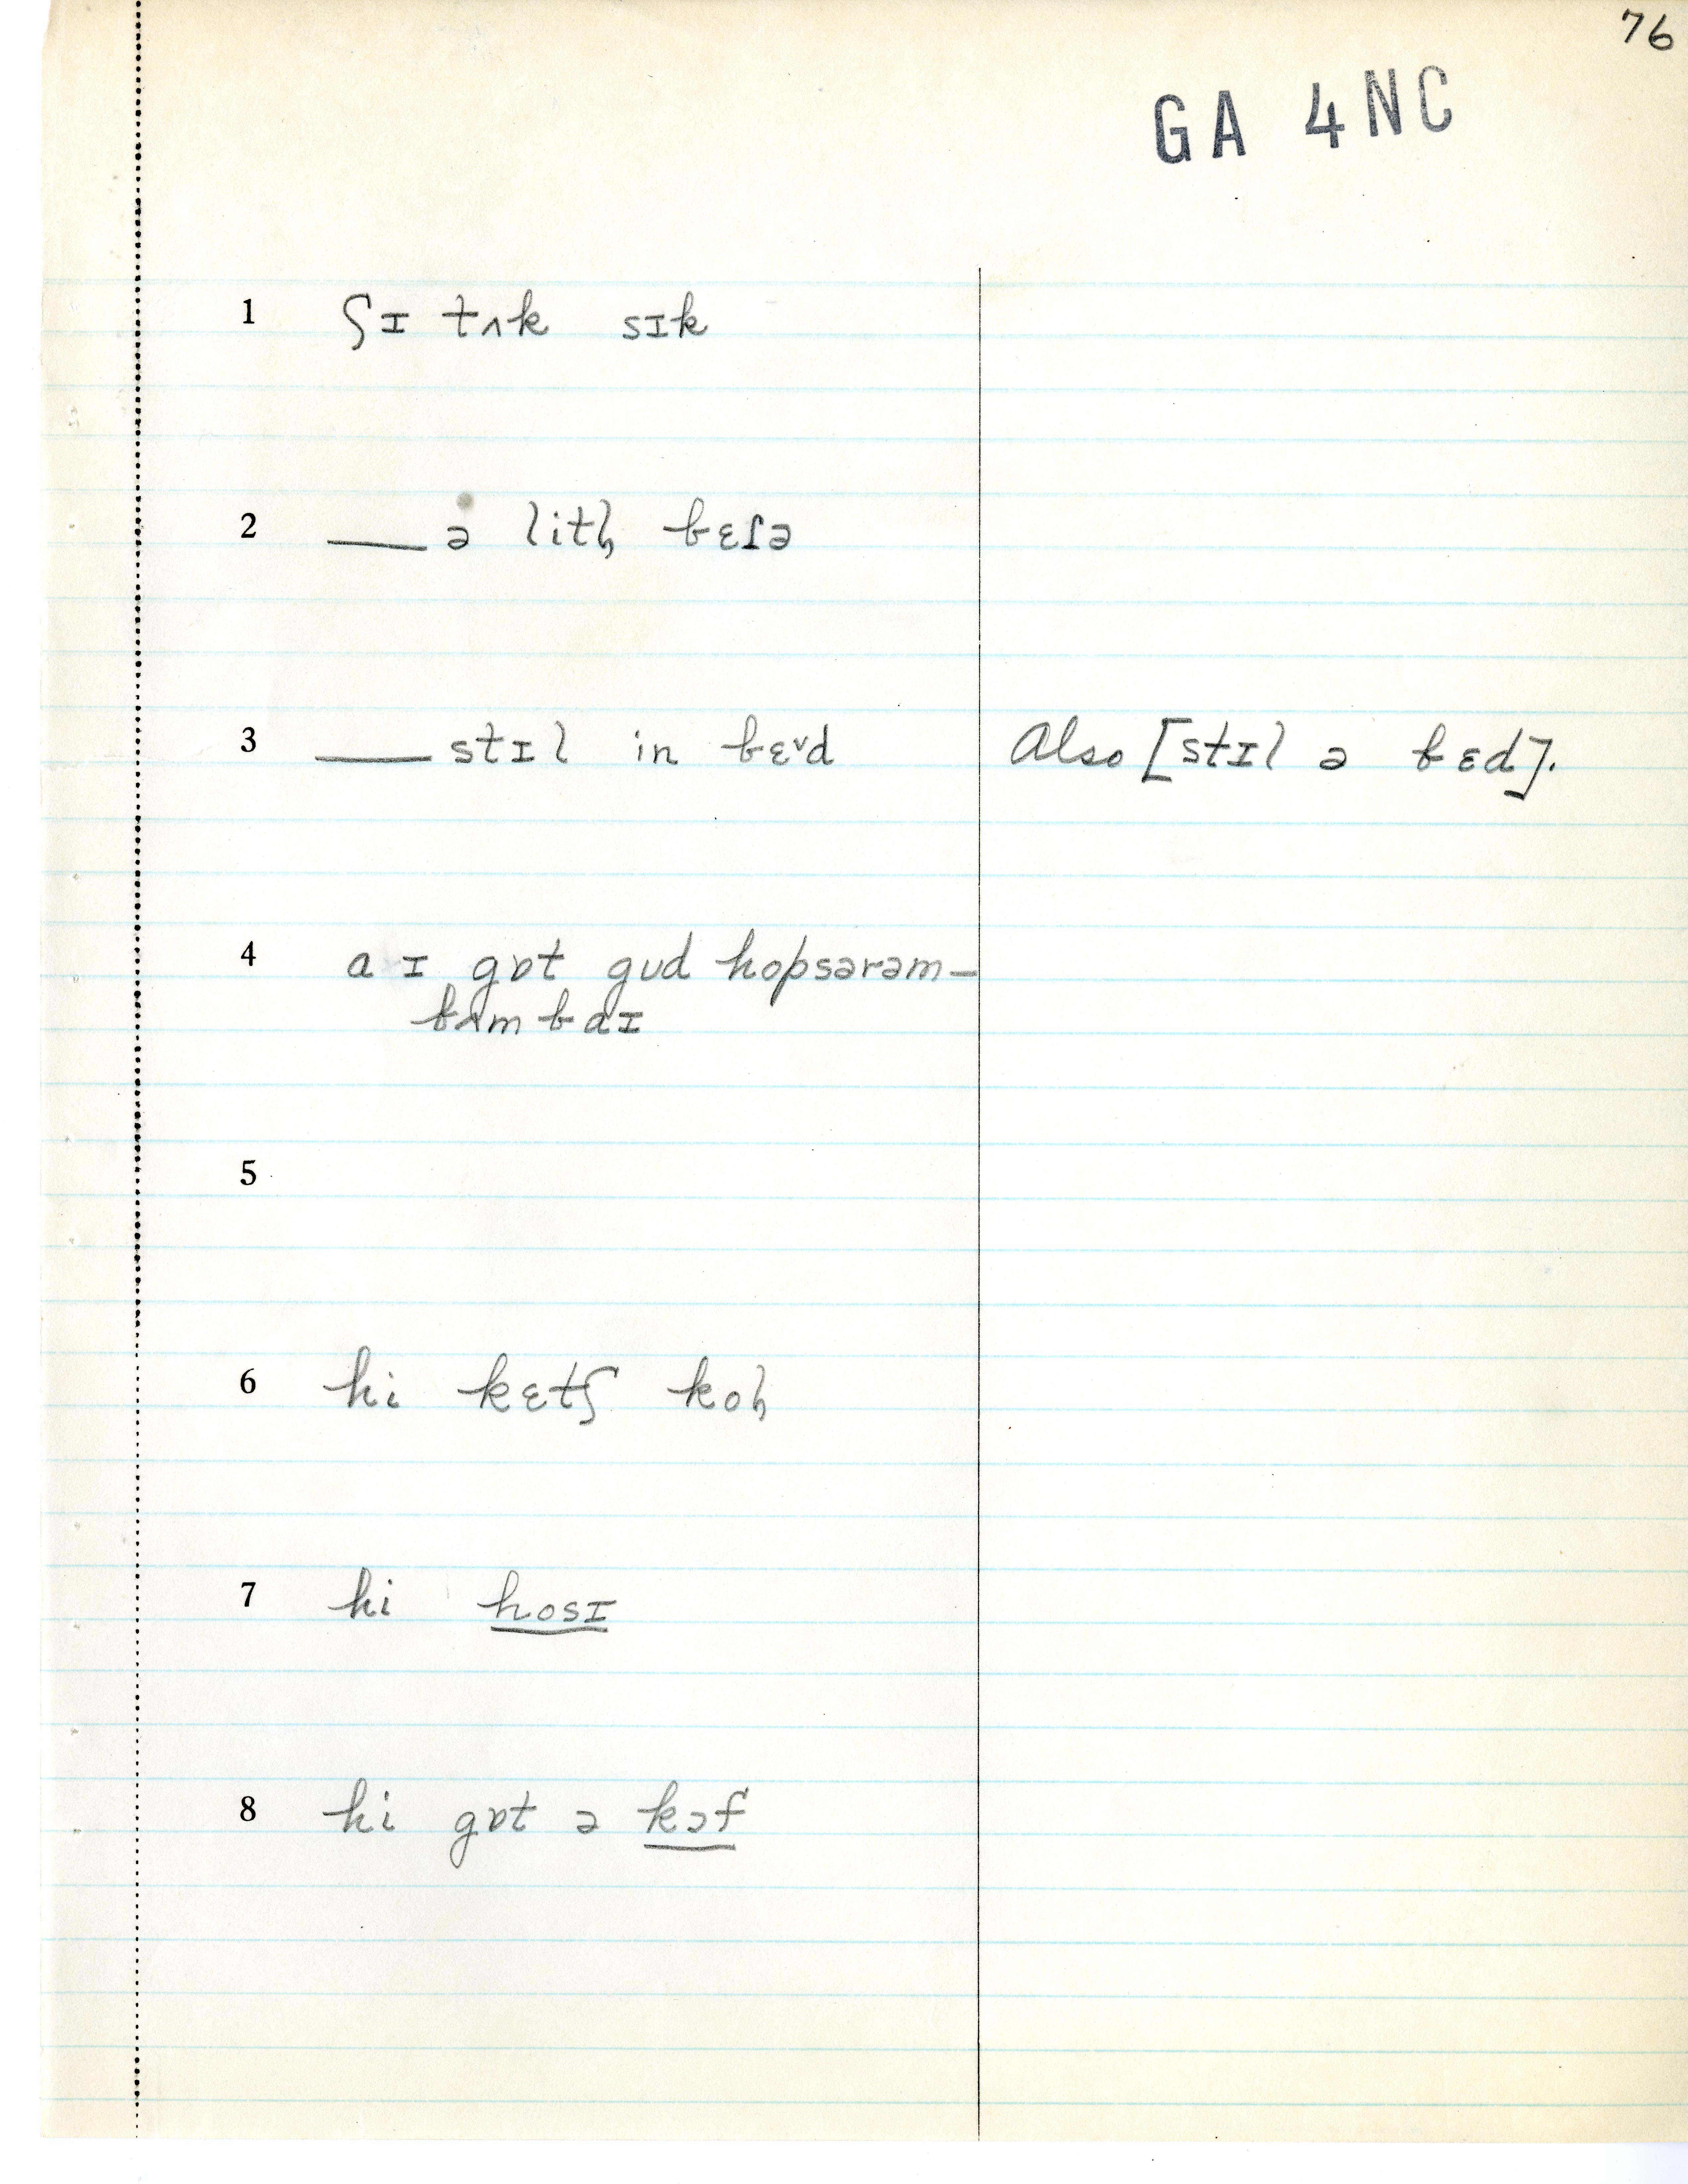 76
GA 4NC
1 ʃɪ tʌk sɪk
2 ___ə litl̩ bɛɾə
3 ___ stɪl in bɛ˅d Also [stɪl ə bɛd].
4 aɪ gɒt gud hopsərəm–
bʌmbaɪ
5
6 hi kɛtʃ kol̩
7 hi hosɪ
8 hi gɒt ə kɔf